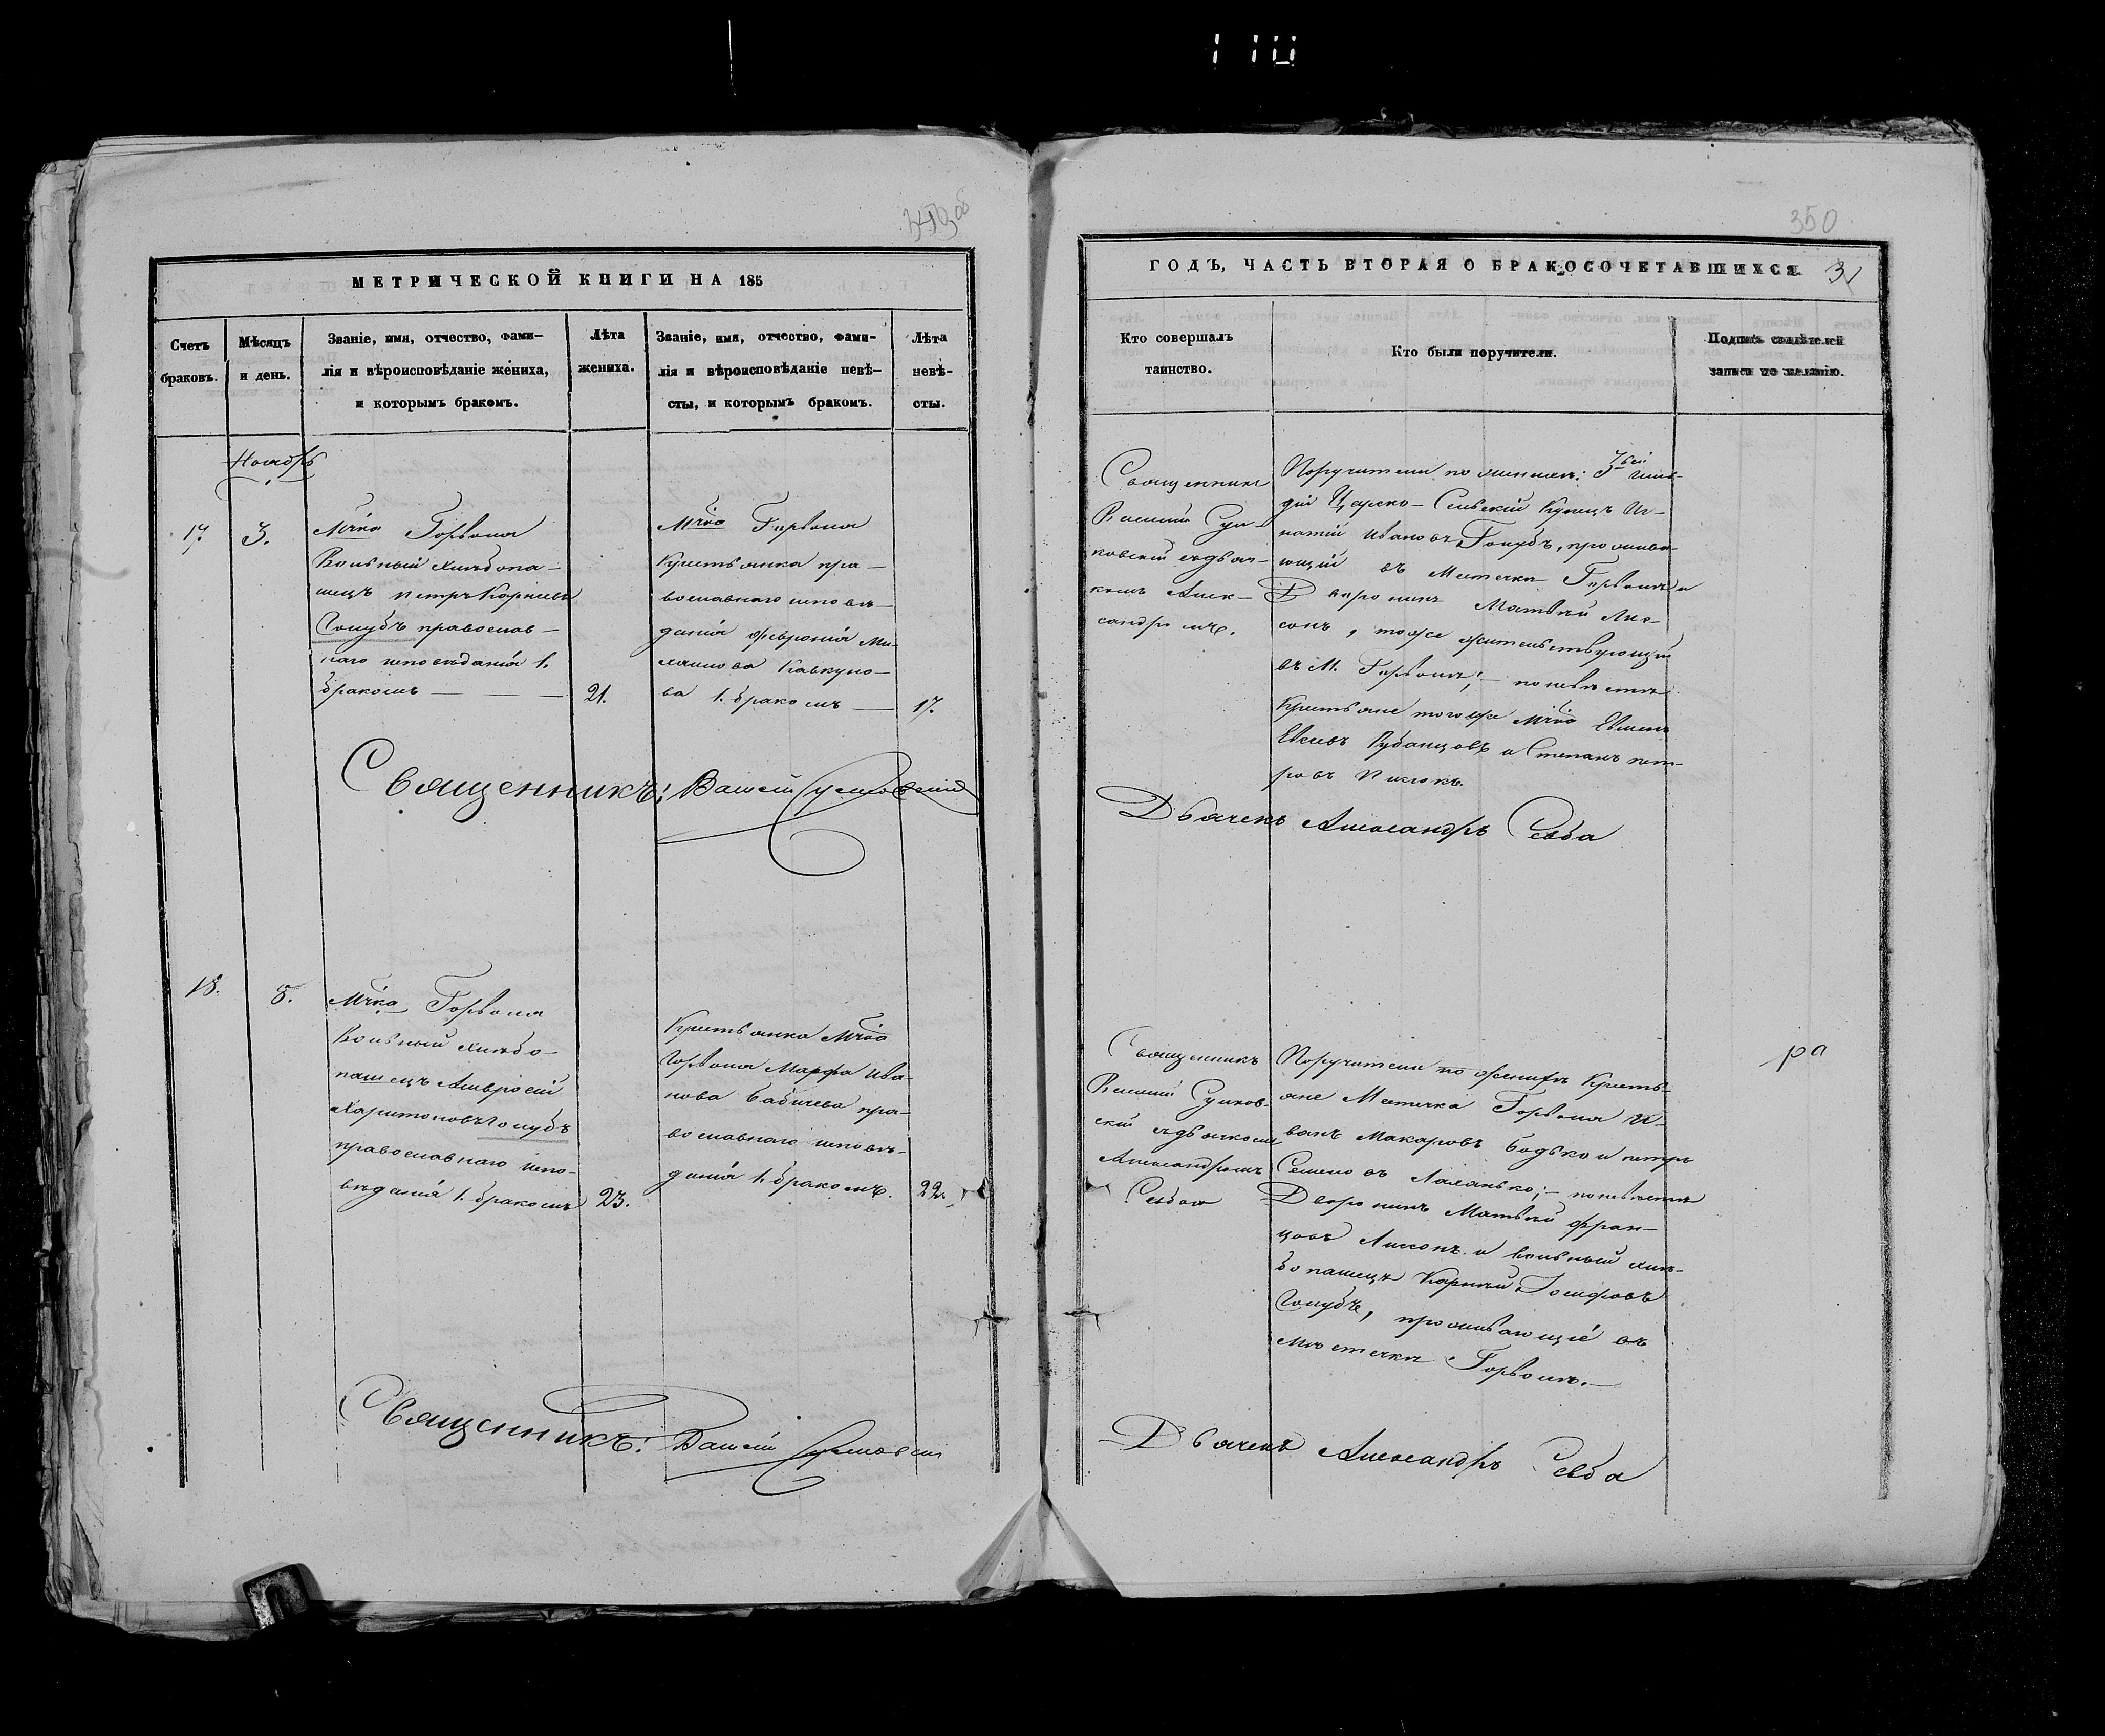 110
350
МЕТРИЧЕСКОЙ КНИГИ НА 185
Счетъ
браковъ.
Мѣсяцъ
и день.
Званіе, имя, отчество, фами-
лія и вѣроисповѣданіе жениха,
и которымъ бракомъ.
Лѣта
жениха.
Званіе, имя, отчество, фами-
лія и вѣроисповѣданіе невѣ-
сты, и которымъ бракомъ.
Лѣта
невѣ-
сты.
Ноябрь
17. 3.
Мѣчка Горволя
Вольный хлѣбопа-
шецъ Петръ Корнѣевъ
Голубъ православ-
наго исповѣданія 1.
бракомъ 21.
Мѣчка Горволя
Крестьянка пра-
вославнаго исповѣ-
данія Февронія Ми-
хаилова
ва 1. бракомъ 17.
Священникъ: Василій
18. 8.
Мѣчка Горволя
Вольный хлѣбо-
пашецъ Амвросій
Харитоновъ Голубъ
православнаго испо-
вѣданія 1. бракомъ 23.
Крестьянка Мѣчка
Горволя Марфа Ива-
нова Бабичева пра-
вославнаго исповѣ-
данія 1. бракомъ. 22.
Священникъ: Василій
ГОДЪ, ЧАСТЬ ВТОРАЯ О БРАКОСОЧЕТАВШИХСЯ. 31
Кто совершалъ
таинство.
Кто были поручители.
Подпись свидѣтелей
записи по желанію.
Священникъ
Василій
ковскій съ дьяч-
комъ Алек-
сандромъ.
Поручители по женихѣ: 3й гиль-
діи Царско-Сельскій Купецъ Иг-
натій Ивановъ Голубъ, прожива-
ющій въ Мѣстечкѣ Горволѣ и
Дворянинъ Матвѣй Лис-
сонъ, тоже жительствующій
въ М. Горволѣ; – по невѣстѣ
Крестьяне того же Мѣчка
Рубанцовъ и Степанъ Пет-
ровъ
Дьячекъ Александръ Себба
Священникъ
Василій
скій съ дьячкомъ
Александромъ
Поручители по женихѣ Кресть-
яне Мѣстечка Горволя И-
ванъ Макаровъ Бодько и Петръ
Семеновъ – по невѣстѣ
Дворянинъ Матвѣй Фран-
цовъ Лиссонъ и вольный хлѣ-
бопашецъ Корнѣй Іосифовъ
Голубъ, проживающіе въ
мѣстечкѣ Горволѣ.–
ра
Дьячекъ Александръ Себба